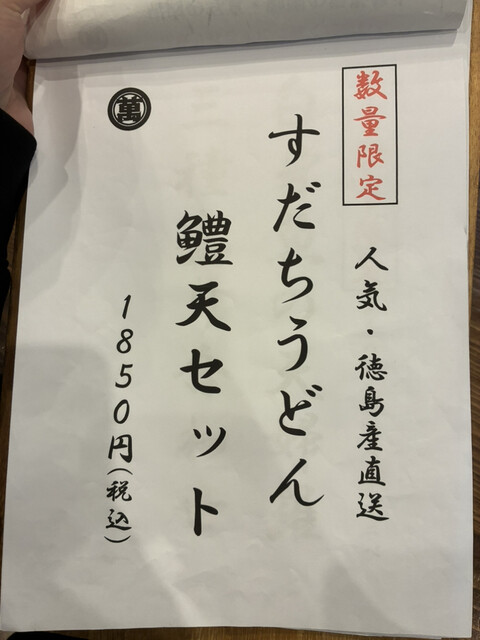 数量限定
人気・徳島産直送
すだちうどん
鱧天セット
1850円(税込)
萬